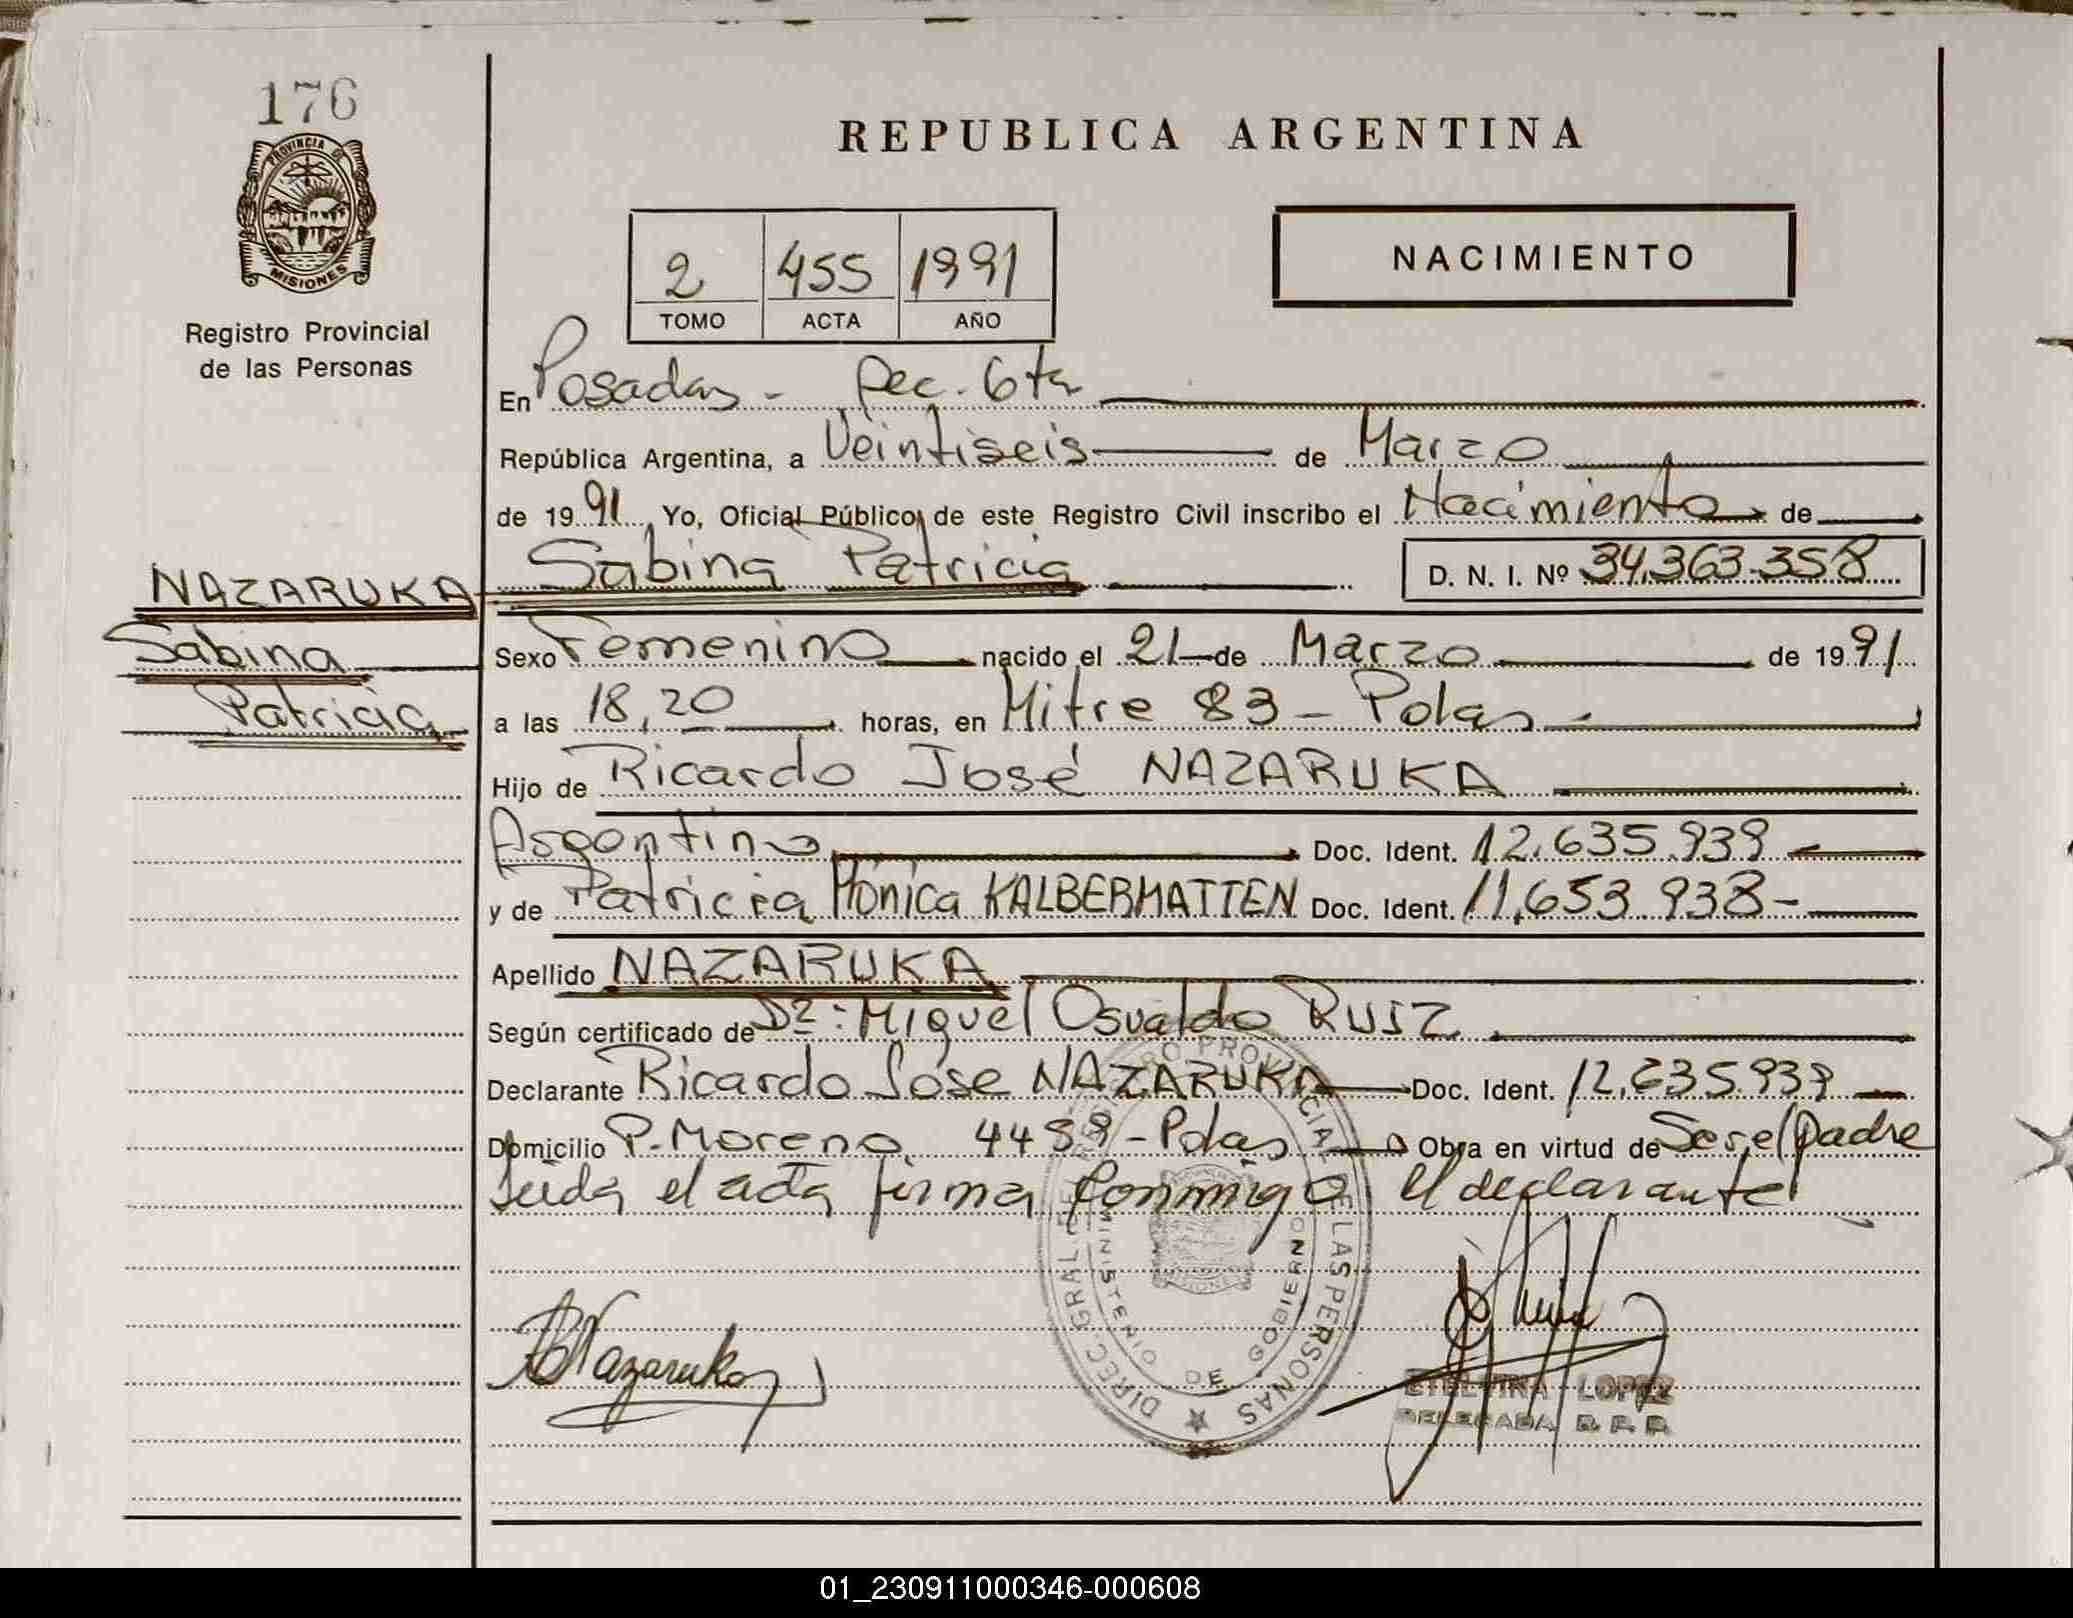 176
PROVINCIA DE
MISIONES
Registro Provincial
de las Personas
REPUBLICA ARGENTINA
2 455 1991
TOMO ACTA AÑO
NACIMIENTO
En Posadas - Sec. 6ta
República Argentina, a Veintiseis de Marzo
de 1991 Yo, Oficial Público, de este Registro Civil inscribo el Nacimiento de
Sabina Patricia D. N. I. Nº 34.363.358
NAZARUKA
Sabina
Patricia
Sexo Femenino nacido el 21 de Marzo de 1991
a las 18,20 horas, en Mitre 83 - Pdas
Hijo de Ricardo José NAZARUKA
Argentino Doc. Ident. 12.635.939
y de Patricia Mónica KALBERMATTEN Doc. Ident. 11.653.938-
Apellido NAZARUKA
Según certificado de Dr: Miguel Osvaldo RUIZ
Declarante Ricardo José NAZARUKA Doc. Ident. 12.635.939
Domicilio P. Moreno - Pdas Obra en virtud de Ser el padre
Leida el acta firma conmigo el declarante
DIREC. GRAL. DEL REGISTRO PROVINCIAL DE LAS PERSONAS
MINISTERIO DE GOBIERNO
Nazaruka
ETELVINA LOPEZ
DELEGADA R. P. P.
01_230911000346-000608